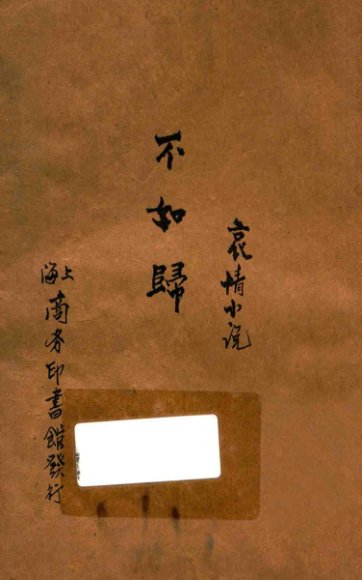 哀情小说
不如歸
上海商务印書館發行